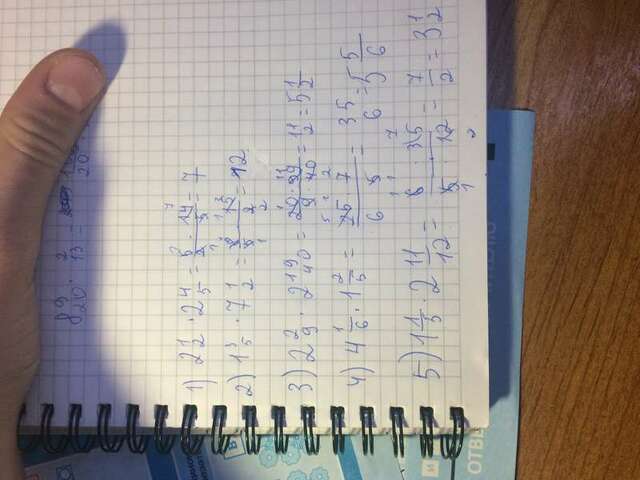 8 9/20 · 2/13 =
1) 2 1/2 · 2 4/5 = 5/2 · 14/5 = 7
2) 1 3/5 · 7 1/2 = 8/5 · 15/2 = 12
3) 2 2/9 · 2 19/40 = 20 · 99/9 · 40 = 11/2 = 5 1/2
4) 4 1/6 · 1 2/5 = 25 · 7/6 · 5 = 35/6 = 5 5/6
5) 1 1/5 · 2 11/12 = 6 · 35/5 · 12 = 7/2 = 3 1/2
ОТВЕ